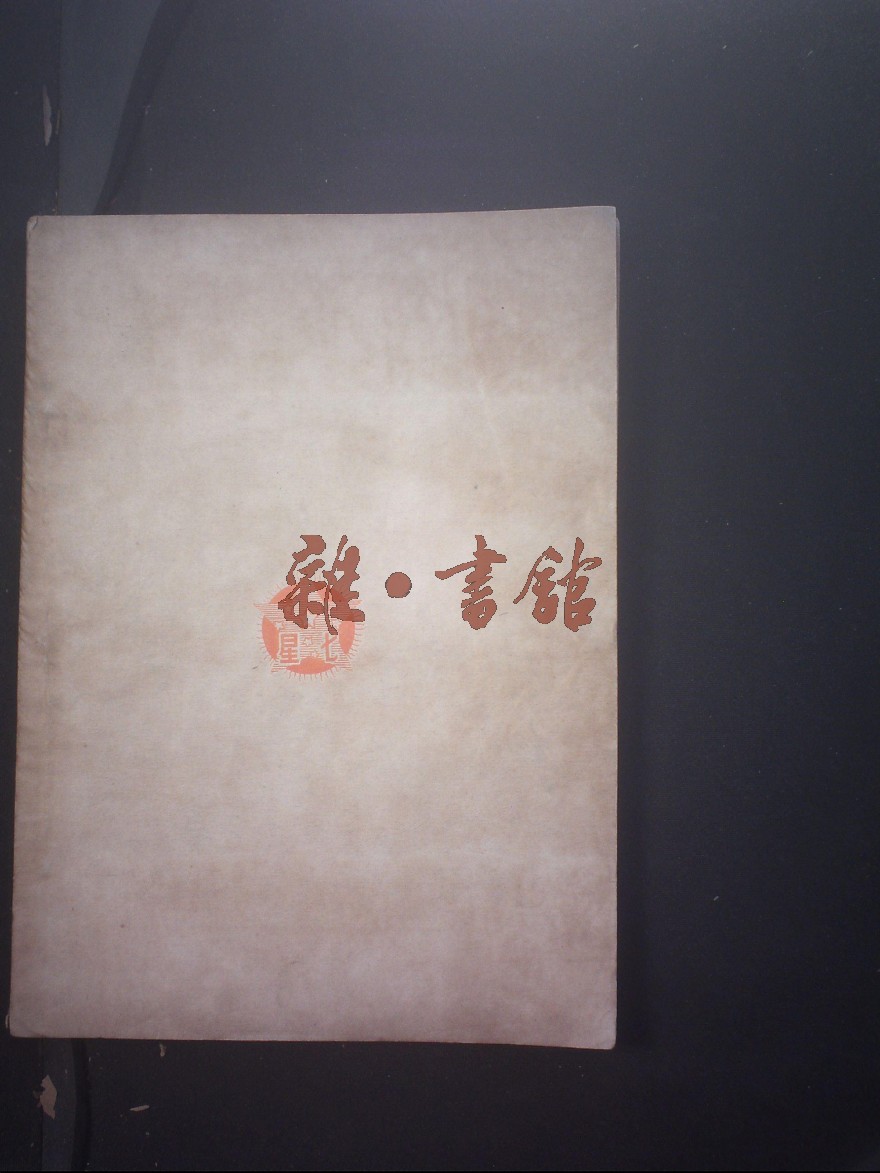 雜·書館
七星